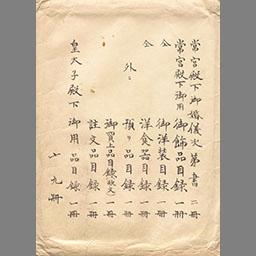 常宮殿下御婚儀次第書 二冊
常宮殿下御用 御飾品目録 一冊
仝 御洋装目録 一冊
仝 洋食器目録 一冊
外ニ 預リ品目録 一冊
御買上品目録欧文 一冊
註文品目録 一冊
皇太子殿下御用品目録 一冊
〆 九冊